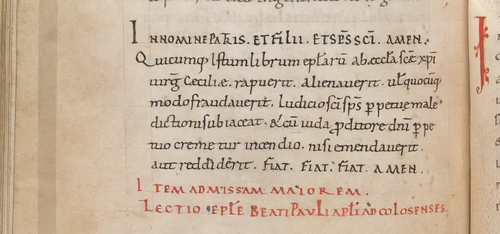 IN NOMINE PATRIS. ET FILII. ET SPS SCI. AMEN.
Quicumq; istum librum eplaru ab eccla scae xpi
uirg Ceciliae. rapuerit. alienauerit. ut quocuq;
modo fraudauerit. Iudicio sci sps perpetuae male
dictioni subiaceat. & cu iuda proditore dni perpe
tuo cremetur incendio. nisi emendauerit.
aut reddiderit. FIAT. FIAT. FIAT. AMEN.
ITEM AD MISSAM MAIOREM.
LECTIO EPLE BEATI PAULI APLI AD COLOSENSES.